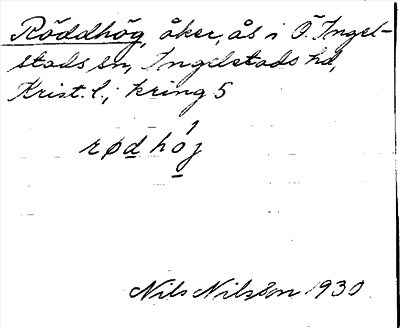 Röddhög, åker, ås i Ö. Ingel-
stads sn, Ingelstads hd,
Krist. l.; kring 5
rød hój
Nils Nilsson 1930